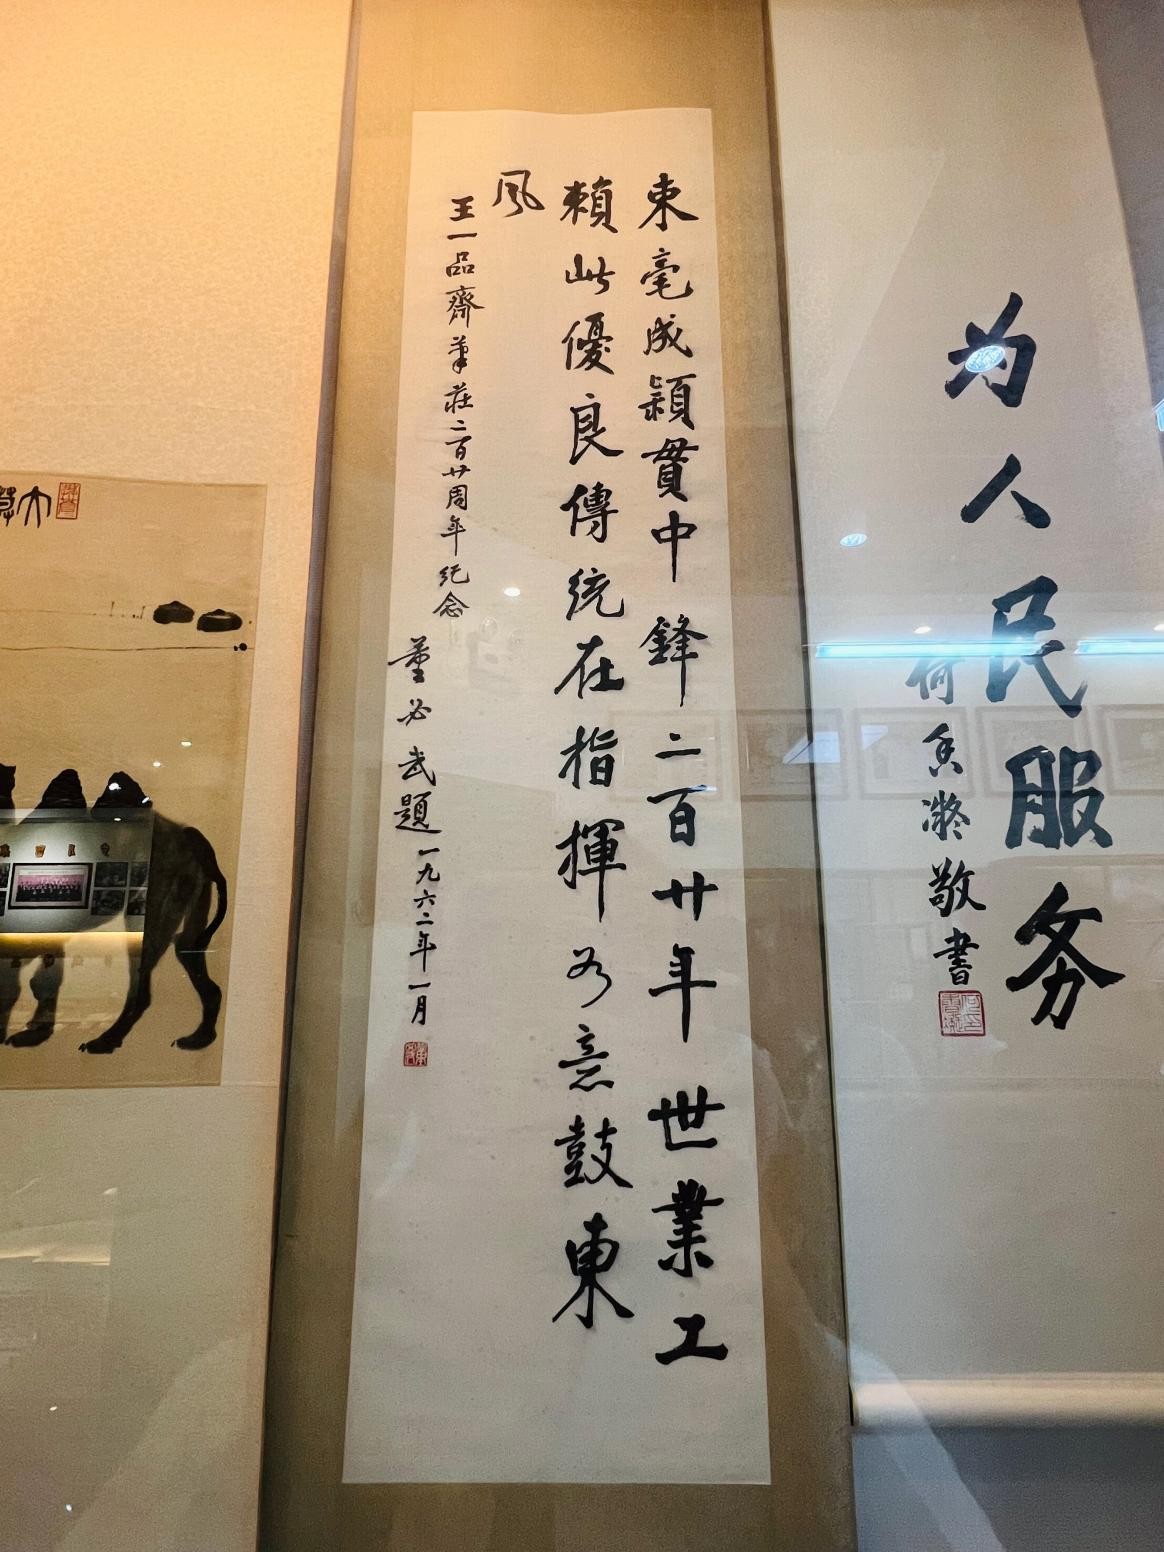 为人民服务
何香凝敬書
束毫成穎貫中鋒二百廿年世業工
賴此優良傳統在指揮如意鼓東
風
王一品齋筆莊二百廿周年紀念
董必武題一九六二年一月
大